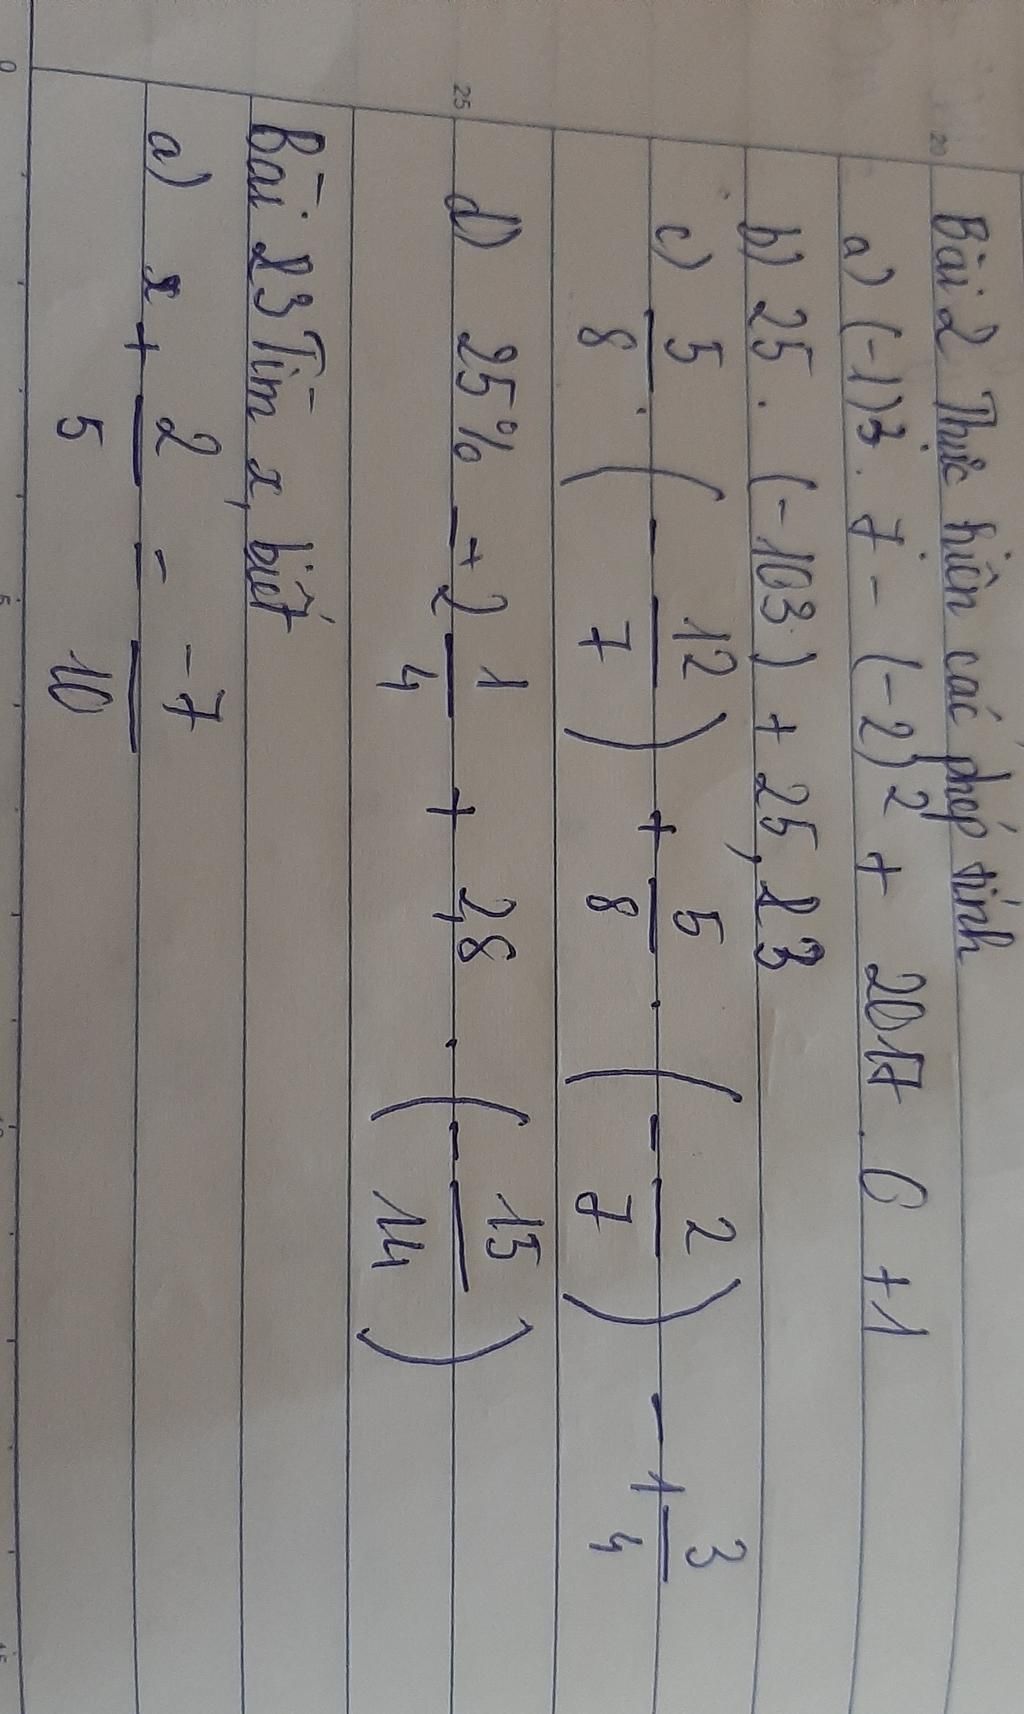 Bài 2 Thực hiện các phép tính
a) (-1)3 . 7 - (-2)2 + 2017 . 6 + 1
b) 25 . (-103) + 25, 23
c) 5/8 . (- 12/7) + 5/8 . (- 2/7) - 1 3/4
d) 25% - 2 1/4 + 2,8 . (- 15/14)
Bài 23 Tìm x, biết
a) x + 2/5 = -7/10
0
5
10
15
20
25